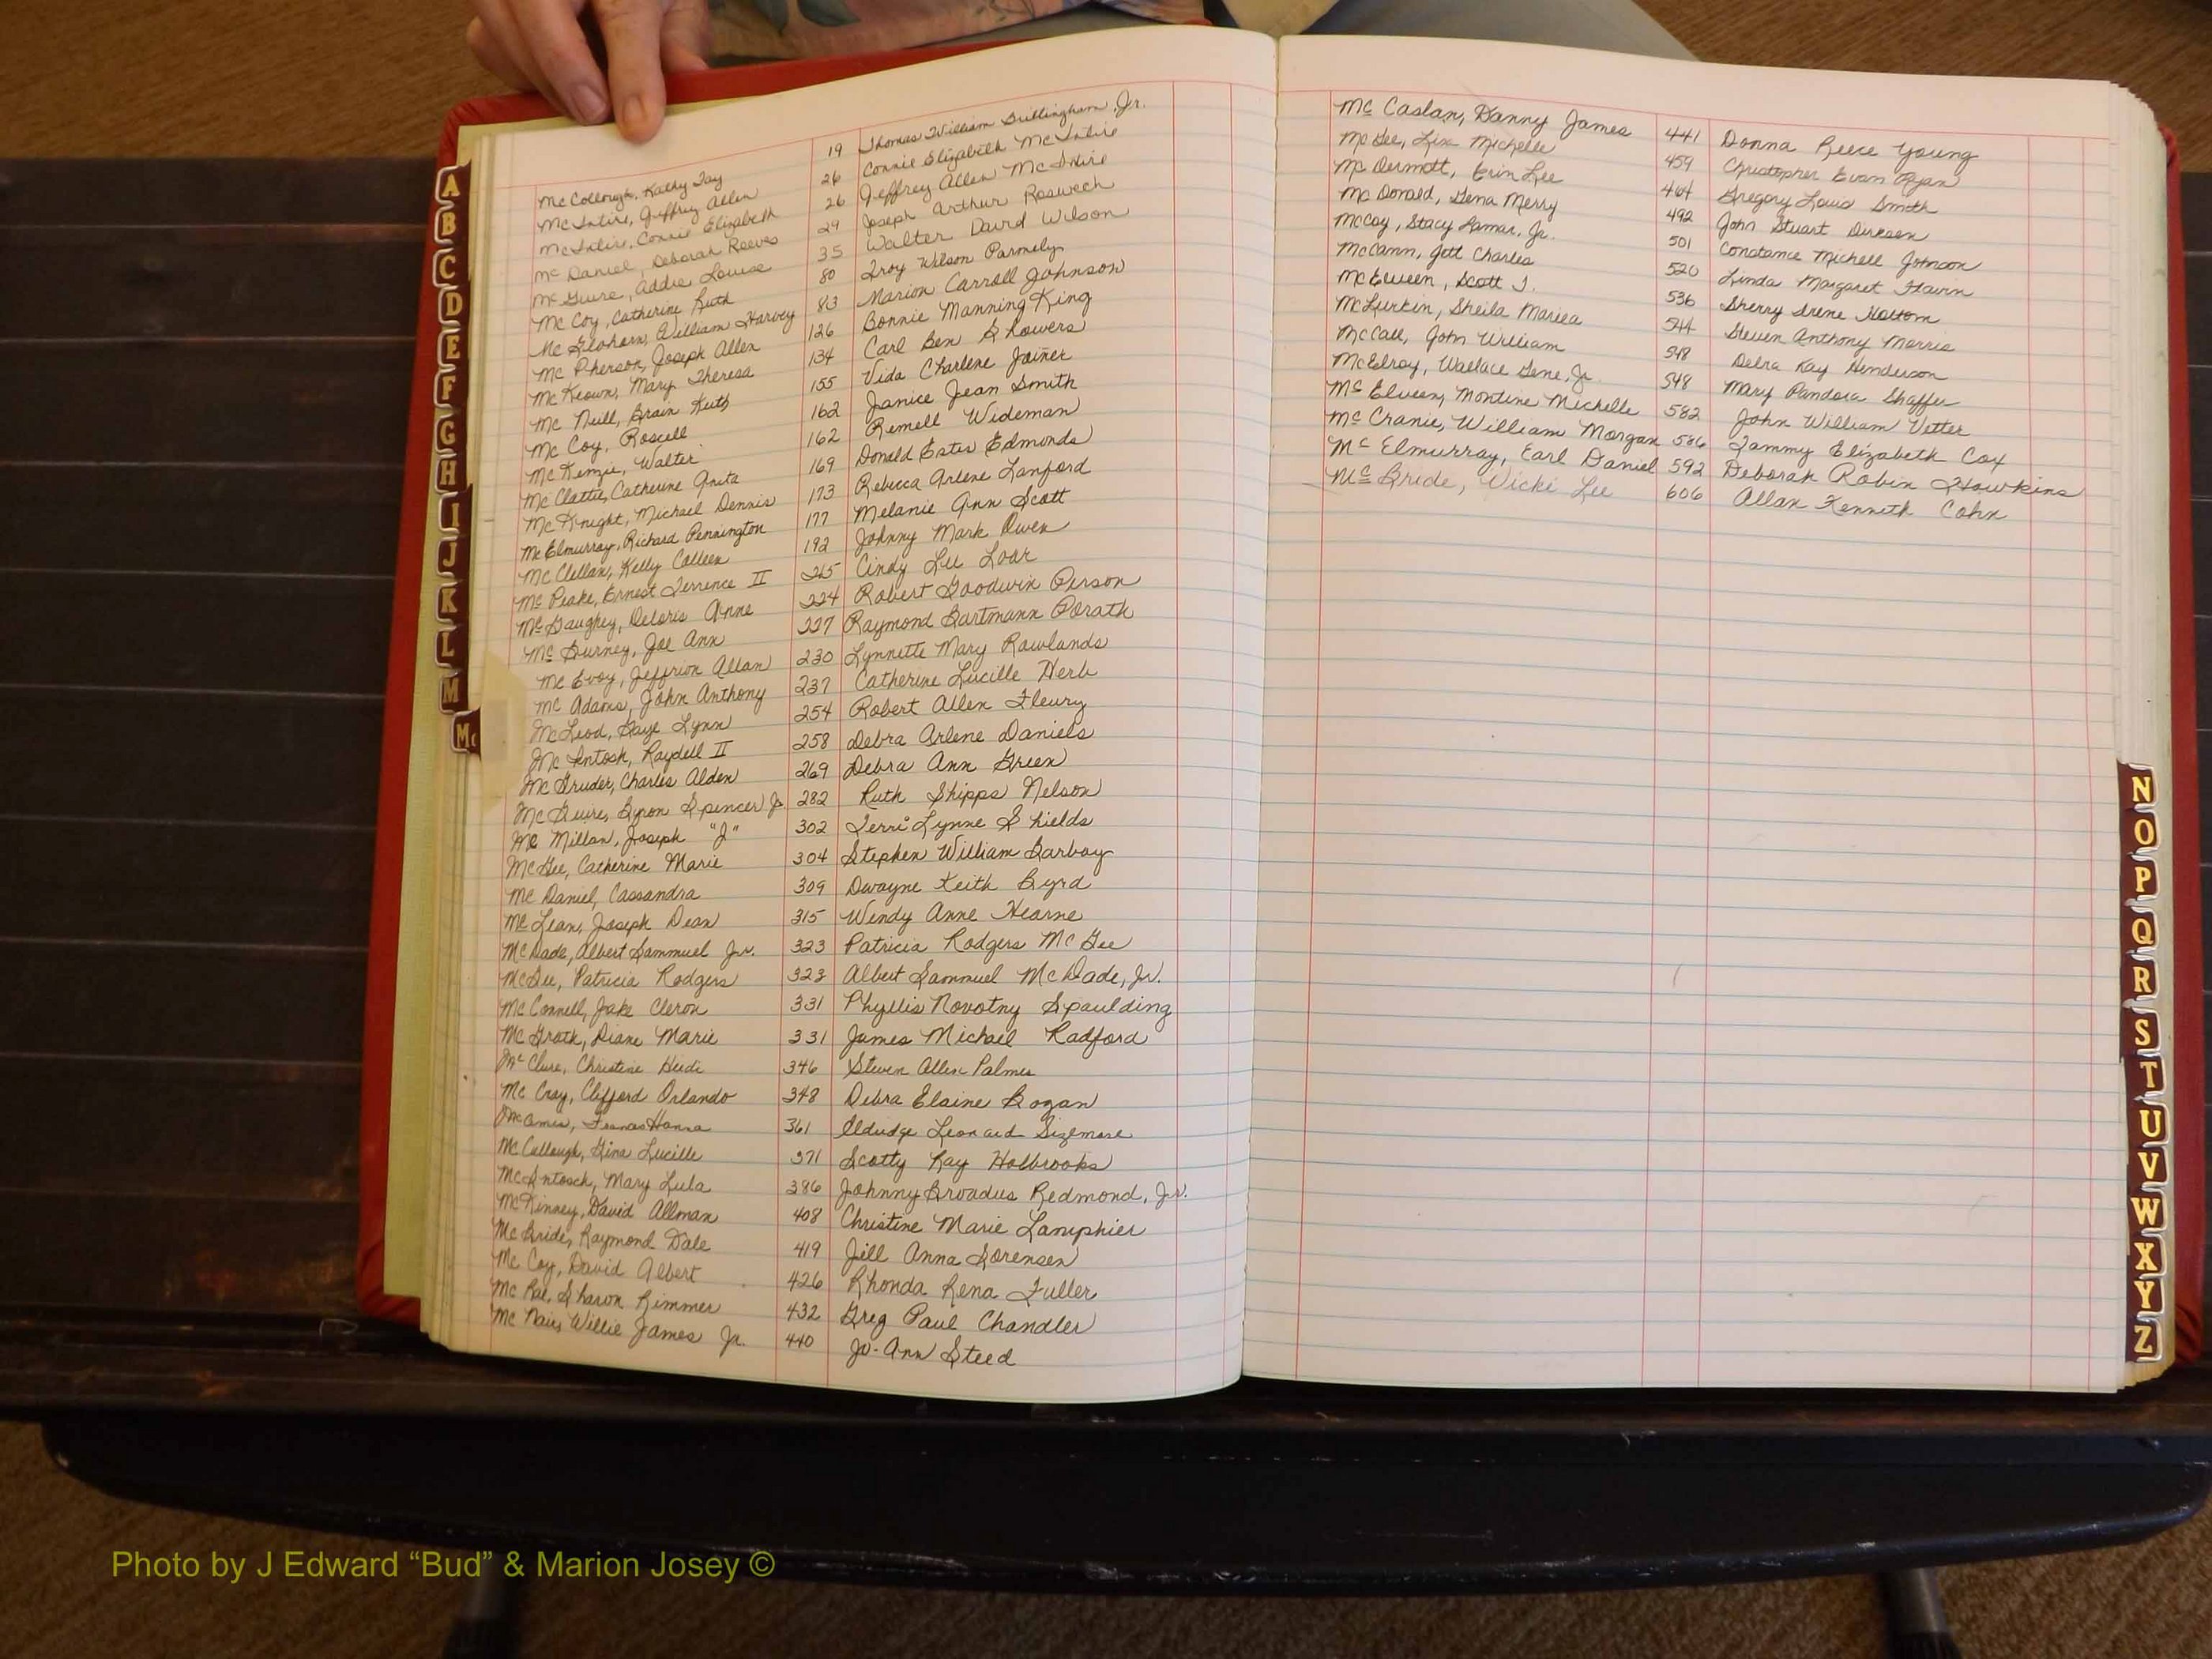 Mc Collough, Kathy Jay 19 Thomas William Brittingham, Jr.
Mc Intire, Jeffrey Allen 26 Connie Elizabeth Mc Intire
Mc Intire, Connie Elizabeth 26 Jeffrey Allen Mc Intire
Mc Daniel, Deborah Reeves 29 Joseph Arthur Roswech
Mc Guire, Addie Louise 35 Walter David Wilson
Mc Coy, Catherine Ruth 80 Troy Wilson Parmely
Mc Glohorn, William Harvey 83 Marion Carroll Johnson
Mc Pherson, Joseph Allen 126 Bonnie Manning King
Mc Keown, Mary Theresa 134 Carl Ben Showers
Mc Neill, Brain Keith 155 Vida Charlene Joiner
Mc Coy, Roscell 162 Janice Jean Smith
Mc Kenzie, Walter 162 Remell Wideman
Mc Clattie, Catherine Anita 169 Donald Estes Edmonds
Mc Knight, Michael Dennis 173 Rebecca Arlene Lanford
Mc Elmurray, Richard Pennington 177 Melanie Ann Scott
Mc Clellan, Kelly Colleen 192 Johnny Mark Owen
Mc Peake, Ernest Terrence II 215 Cindy Lee Loar
Mc Gaughey, Deloris Anne 224 Robert Goodwin Person
Mc Burney, Joe Ann 227 Raymond Bartmann Porath
Mc Evoy, Jeffrion Allan 230 Lynnette Mary Rawlands
Mc Adams, John Anthony 237 Catherine Lucille Herb
Mc Leod, Gaye Lynn 254 Robert Allen Fleury
Mc Intosh, Raydell II 258 Debra Arlene Daniels
Mc Gruder, Charles Alden 269 Debra Ann Green
Mc Guire, Byron Spencer Jr. 282 Ruth Shipps Nelson
Mc Millan, Joseph "J" 302 Terri Lynne Shields
Mc Gee, Catherine Marie 304 Stephen William Barbay
Mc Daniel, Cassandra 309 Dwayne Keith Byrd
Mc Lean, Joseph Dean 315 Wendy Anne Hearne
Mc Dade, Albert Sammuel Jr. 323 Patricia Rodgers Mc Gee
Mc Gee, Patricia Rodgers 323 Albert Sammuel Mc Dade, Jr.
Mc Connell, Jake Cleron 331 Phyllis Novotny Spaulding
Mc Grath, Diane Marie 331 James Michael Radford
Mc Clure, Christine Heidi 346 Steven Allen Palmer
Mc Cray, Clifford Orlando 348 Debra Elaine Bogan
Hanna 361 Leonard Sizemore
Mc Cullough, Gina Lucille 371 Scotty Ray Holbrooks
Mc Intosch, Mary Lula 386 Johnny Broadus Redmond, Jr.
Mc Kinney, David Allman 408 Christine Marie Lamphier
Mc Bride, Raymond Dale 419 Jill Anna Sorensen
Mc Coy, David Albert 426 Rhonda Rena Fuller
Mc Rae, Sharon Kimmer 432 Greg Paul Chandler
Mc Nair, Willie James Jr. 440 Jo-Ann Steed
Mc Caslan, Danny James 441 Donna Reece Young
Mc Gee, Lisa Michelle 459 Christopher Evan Ryan
Mc Dermott, Erin Lee 464 Gregory Louis Smith
Mc Donald, Gena Merry 492 John Stuart Dirksen
McCoy, Stacy Lamar, Jr. 501 Constance Michell Johnson
McCann, Jett Charles 520 Linda Margaret Flavin
McEween, Scott J. 536 Sherry Irene Hottom
McLurkin, Sheila Mariea 544 Steven Anthony Morris
McCall, John William 548 Debra Kay Henderson
McElroy, Wallace Gene, Jr. 548 Mary Pandora Shaffer
Mc Elveen, Montine Michelle 582 John William Vetter
Mc Cranie, William Morgan 586 Tammy Elizabeth Cox
Mc Elmurray, Earl Daniel 592 Deborah Robin Hawkins
Mc Bride, Vicki Lee 606 Allan Kenneth Cohn
A
B
C
D
E
F
G
H
I
J
K
L
M
Mc
N
O
P
Q
R
S
T
U
V
W
X
Y
Z
Photo by J Edward “Bud” & Marion Josey ©